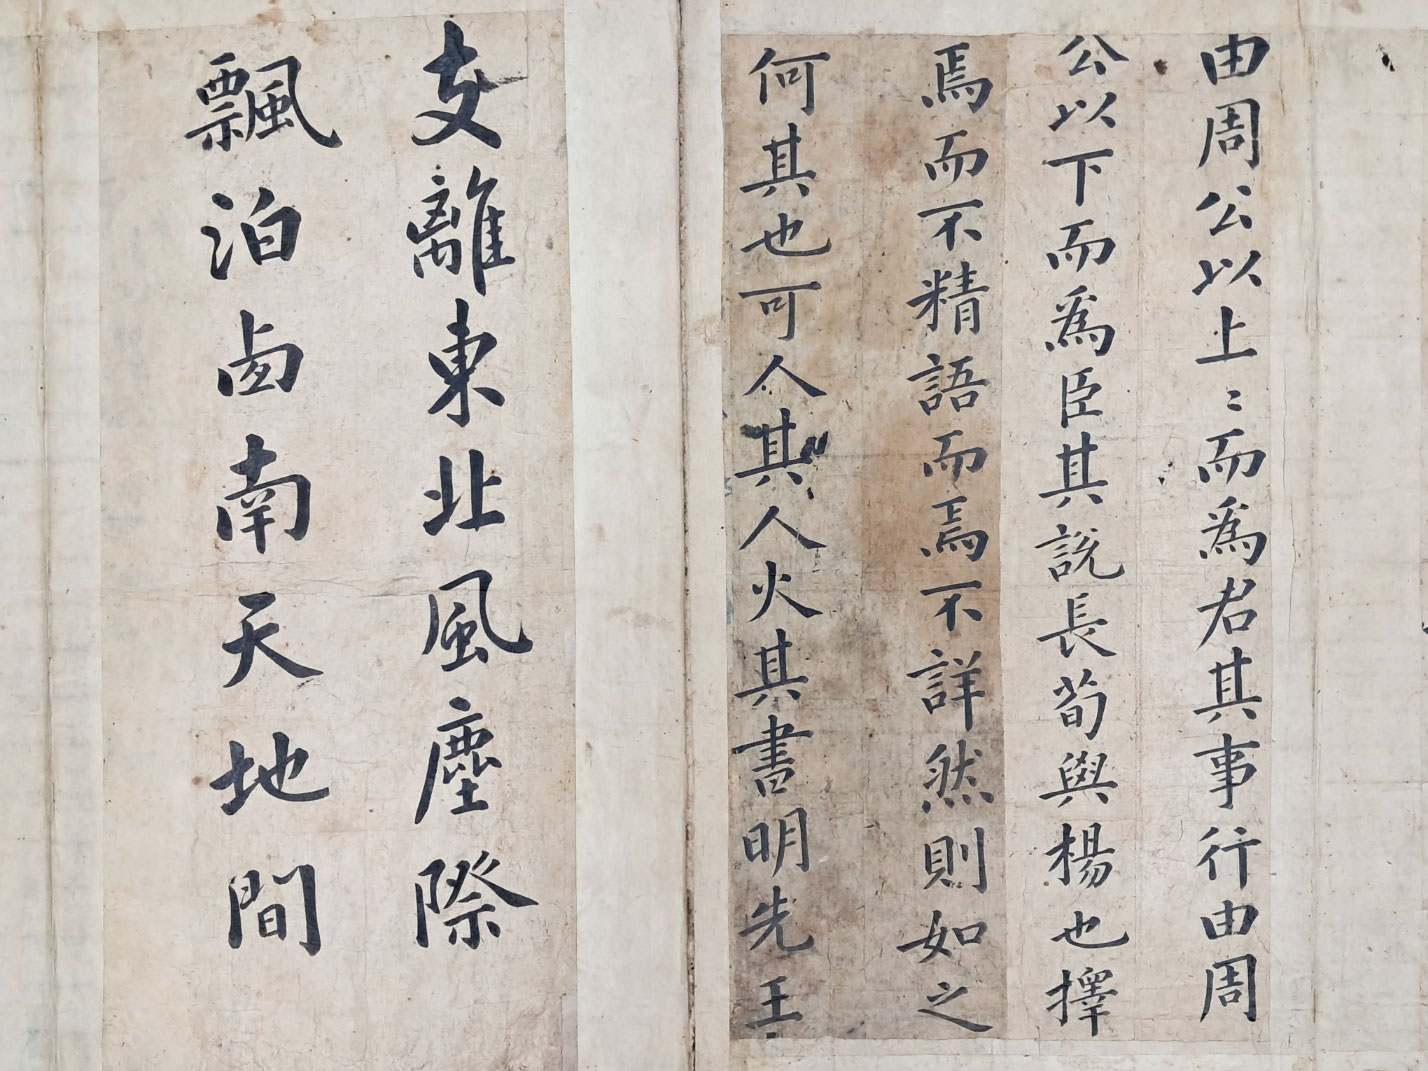 由周公以上〻而爲君其事行由周
公以下而爲臣其説長荀與楊也擇
焉而不精語而焉不詳然則如之
何其也可人其人火其書明先王
支離東北風塵際
飄泊西南天地間